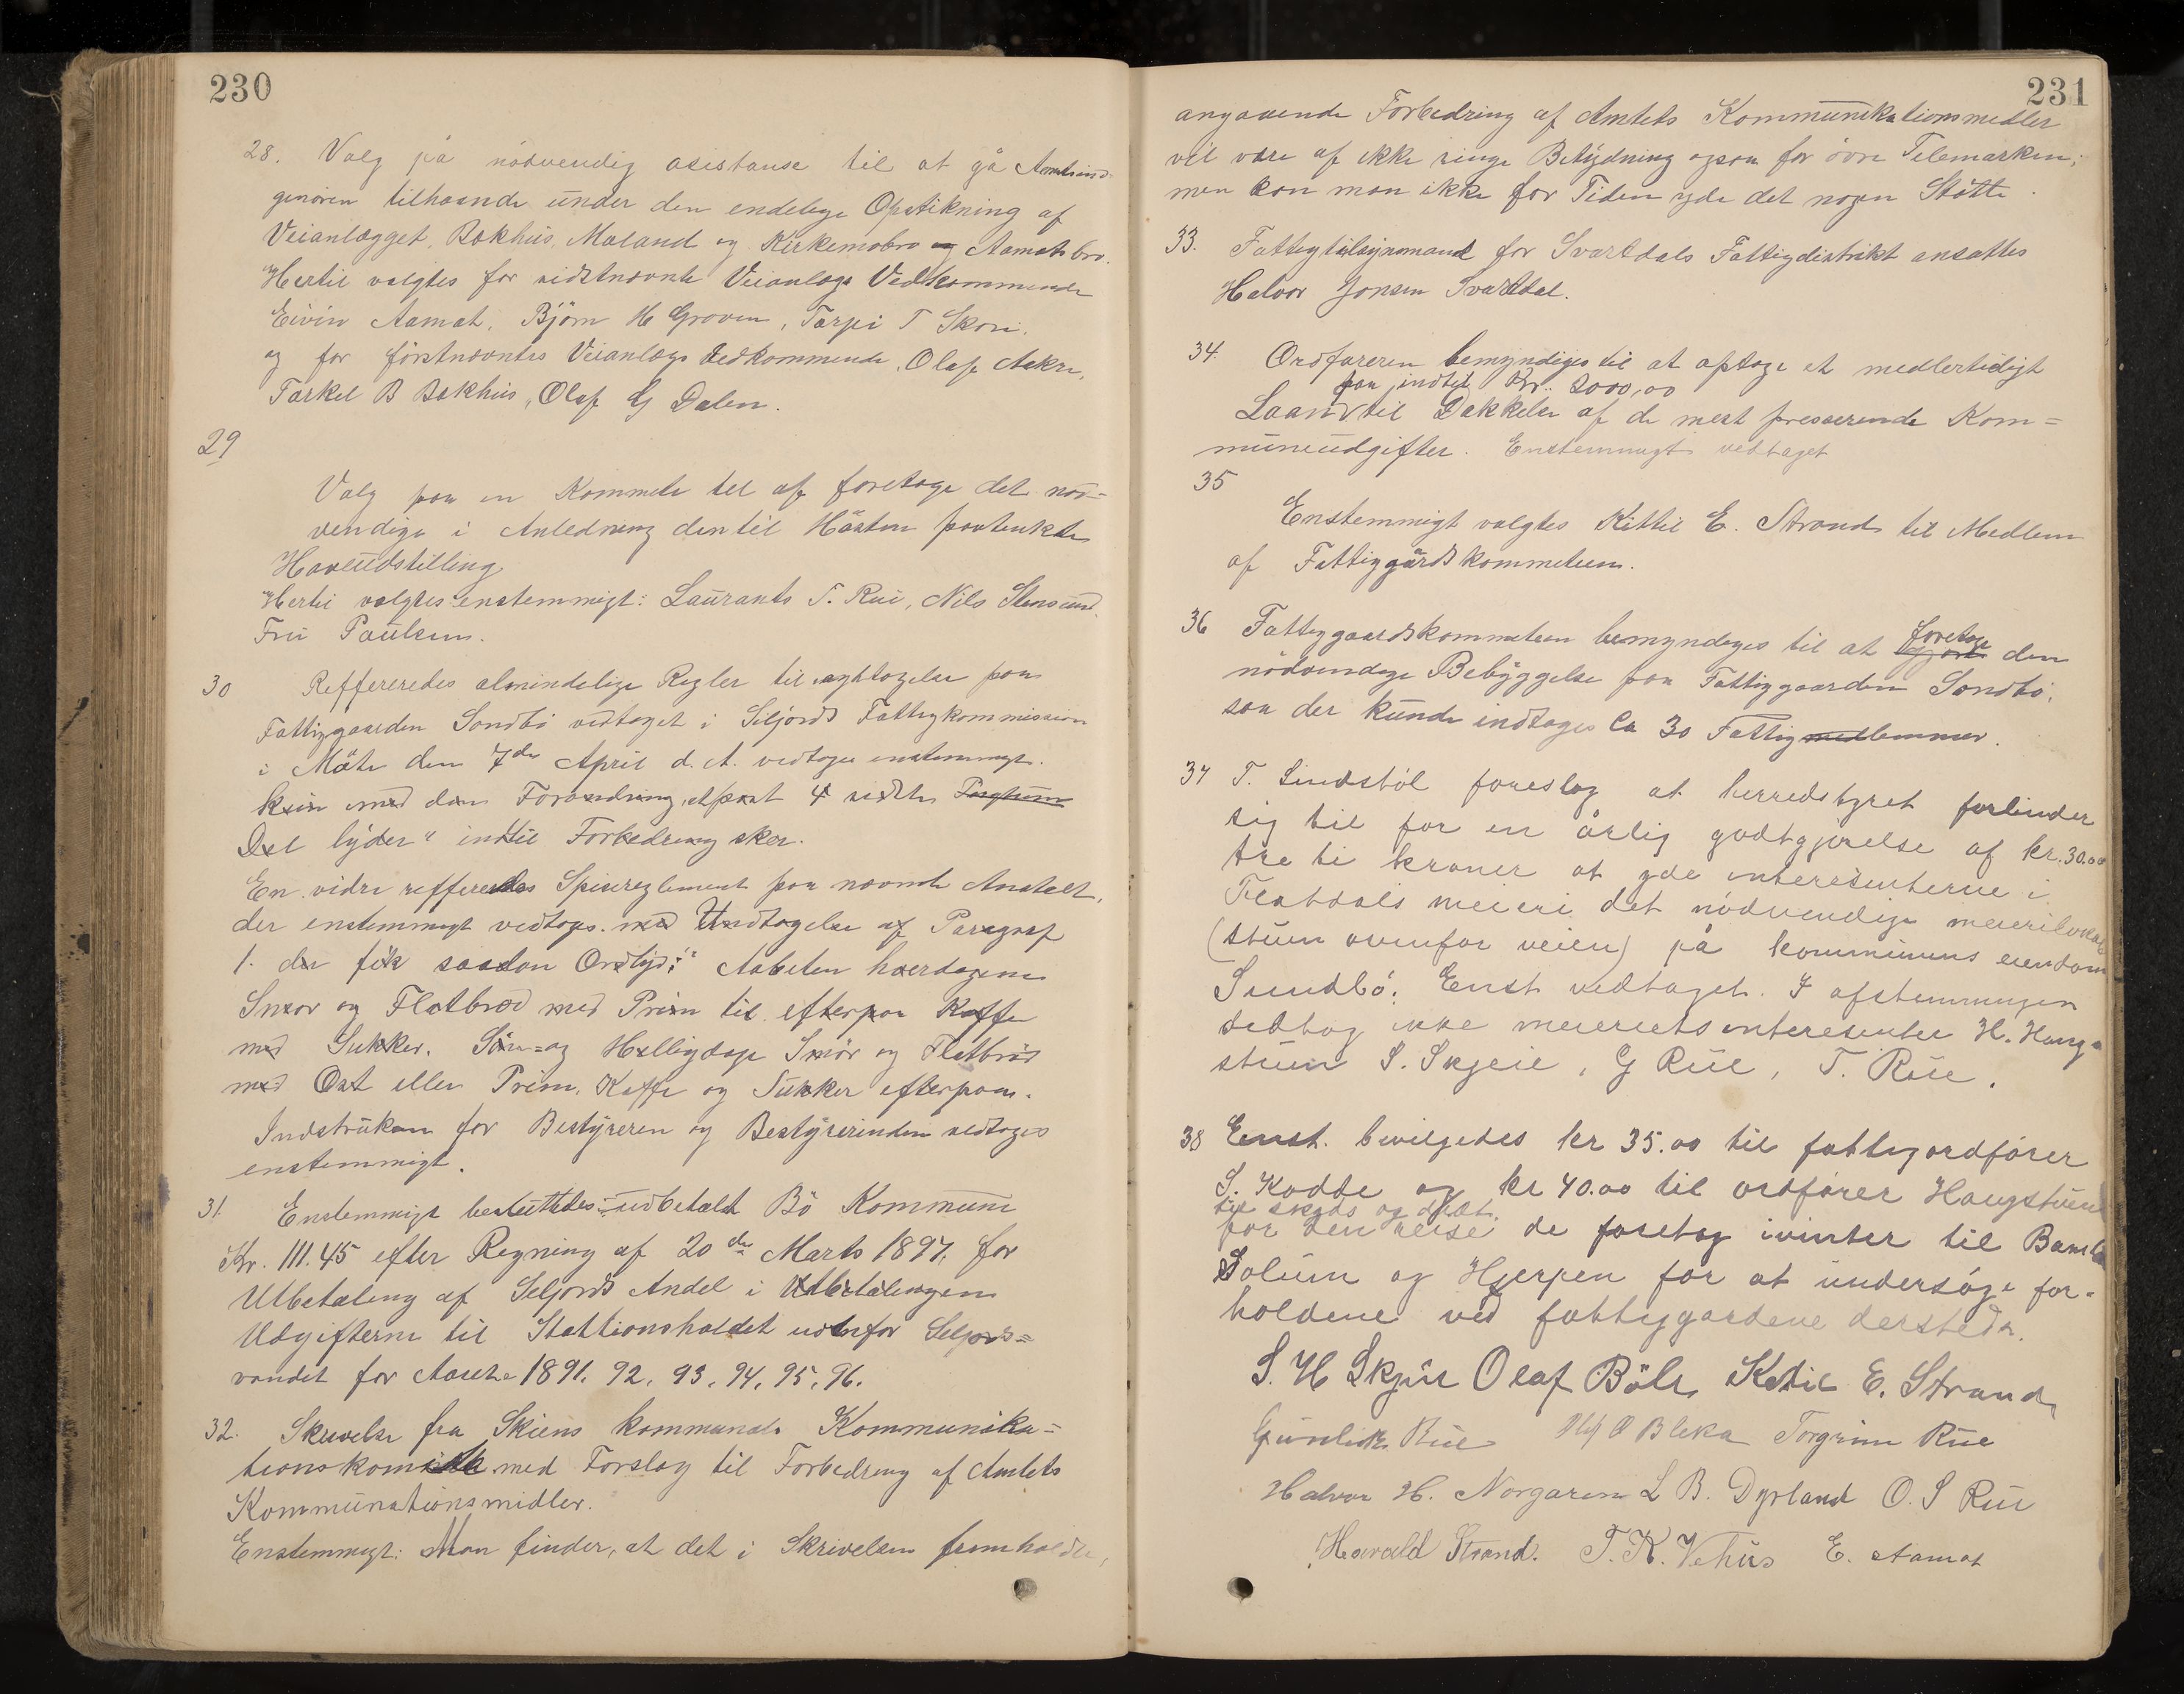 230
28. Valg på nödvendig asistanse til at gå Amtsind-
geniören tilhaande under den endelige Opstikning af
Veianlægget, Bakhus, Maland og Kirkemobro og Aamotsbro.
Hertil valgtes for sidstnævnte Veianlægs Vedkommende
Eivin Aamot, Björn H Groven, Tarjei T Skori,
og for förstnævntes Veianlægs Vedkommende, Olaf Aakre,
Tarkel B Bakhus, Olaf G Dalen.
29
Valg paa en Kommete til at foretage det nöd-
vendige i Anledning den til Hösten paatenkte
Haveudstilling
Hertil valgtes enstemmigt: Laurants T. Rui, Nils Stensund,
Fru Paulsen.
30 Reffereredes almindelige Regler til agttagelse paa
Fattiggaarden Sondbö vedtaget i Seljords Fattigkommission
i Möte den 7de April d. A. vedtoges enstemmigt.
kun med den Forandring, at post 4 sidste Pasytum
Del lyder "indtil Forbedring sker.
En vidre reffereredes Spisereglement paa nævnte Anstalt,
der enstemmigt vedtoges med Undtagelse af Paragraf
1. der fik saadan Ordlyd: "Aabiten hverdagene
Smør og Flatbrød med Prim til efterpaa Kaffe
med Sukker. Søn= og Helligdage Smör og Flatbrød
med Ost eller Prim, Kaffe og Sukker efterpaa.
Indstruksen for Bestyreren og Bestyrerinden vedtoges
enstemmigt.
31. Enstemmigt besluttedes udbetalt Bö Kommune
Kr. 111.45 efter Regning af 20de Marts 1897, for
Utbetaling af Seljords Andel i Utbetalingen
Udgifterne til Stattionsholdet udenfor Seljords=
vandet for Aarene 1891, 92, 93, 94, 95, 96.
32. Skrivelse fra Skiens kommunale Kommunika=
tionskomite med Forslag til Forbedring af Amtets
Kommunationsmidler.
Enstemmigt: Man finder, at det i Skrivelsen fremholdte,
231
angaaende Forbedring af Amtets Kommunikationsmedler
vil være af ikke ringe Betydning ogsaa for övre Telemarken;
men kan man ikke for Tiden yde det nogen Stötte.
33. Fattigtilsynsmand for Svartdals Fattigdistrikt ansattes
Halvor Jonsen Svartdal.
34. Ordföreren bemyndiges til at optage et medlertidigt
paa indtil Kr. 2000,00
Laan til Dækkelse af de mest presserende Kom=
muneudgifter. Enstemmigt vedtaget
35
Enstemmigt valgtes Kittil E. Strand til Medlem
af Fattiggårdskommeteen.
36 Fattiggaardskommeteen bemyndiges til at gjöre foretage den
nödvendige Bebyggelse paa Fattiggaarden Sondbö,
saa der kunde indtages Ca 30 Fattigmedlemmer.
37 T. Lindstöl foreslog at herredstyret forbinder
sig til for en årlig godtgjørelse af kr. 30.00
tre ti kroner at yde interesenterne i
Flatdals meieri det nödvendige meierilokale
(stuen ovenfor veien) på kommunens eiendom
Sundbö. Enst vedtaget. I afstemningen
deltog ikke meieriets interesenter H. Haug-
stuen S. Skjeie, G Rue, T. Rue.
38 Enst. bevilgedes kr 35.00 til fattigordförer
S. Kodde og kr 40.00 til ordförer Haugstuen
til skyds og diæt
for den reise de foretog ivinter til Bamle
Solum og Hjerpen for at undersöge for-
holdene ved fattiggardene dersteds.
S. H Skjeie Olaf Böle Ketil E. Strand
Gunleik Rue O Bleka Torgrim Rue
Halvor H. Norgaren L B. Dyrland O. S Rue
Harald Strand. T. K. Vehus E. Aamot